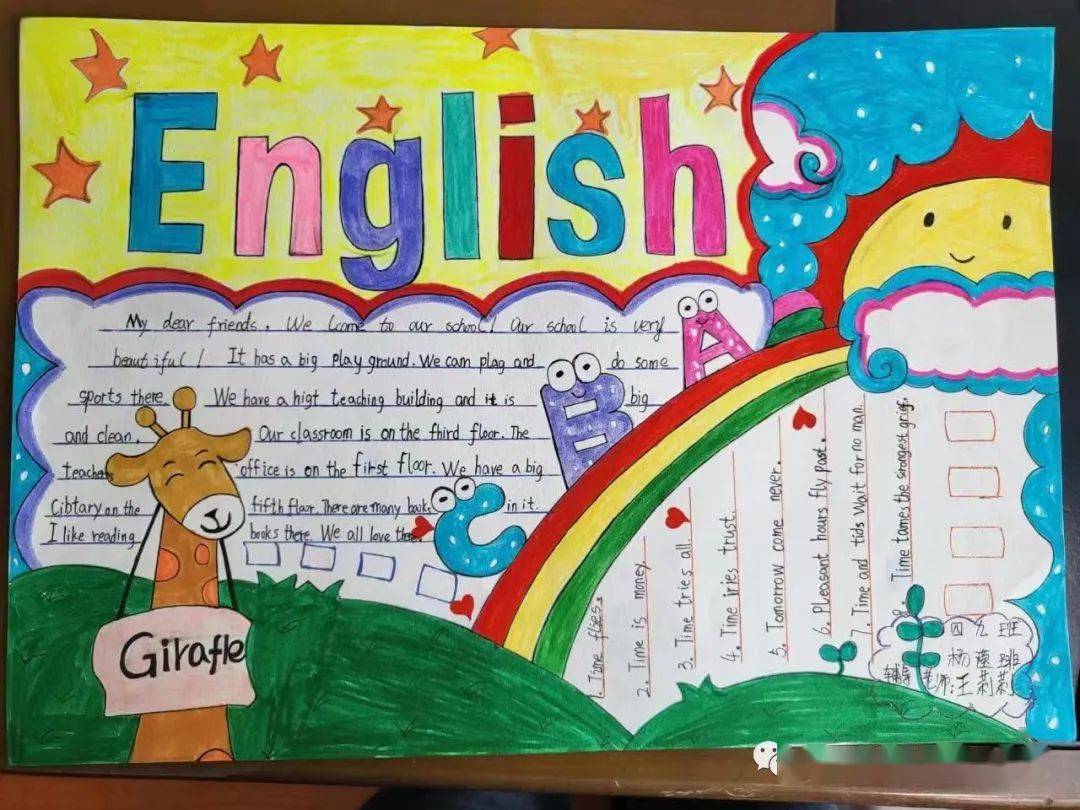 English
My dear friends. We Lcome to our school! Our school is very
beautiful! It has a big play ground. We cam plag and do some
sports there. We have a higt teaching building and it is big
and clean. Our classroom is on the third floor. The
teachers office is on the first floor. We have a big
Cibtary on the fifth floor. There are many books in it.
I like reading books there. We all love there.
A
B
C
Girafle
1. Time flies.
2. Time is money.
3. Time tries all.
4. Time tries trust.
5. Tomorrow come never.
6. Pleasant hours fly past.
7. Time and tids Wait for no man.
Time tames the strongest grief.
四 九 班
杨
辅导老师:王莉莉